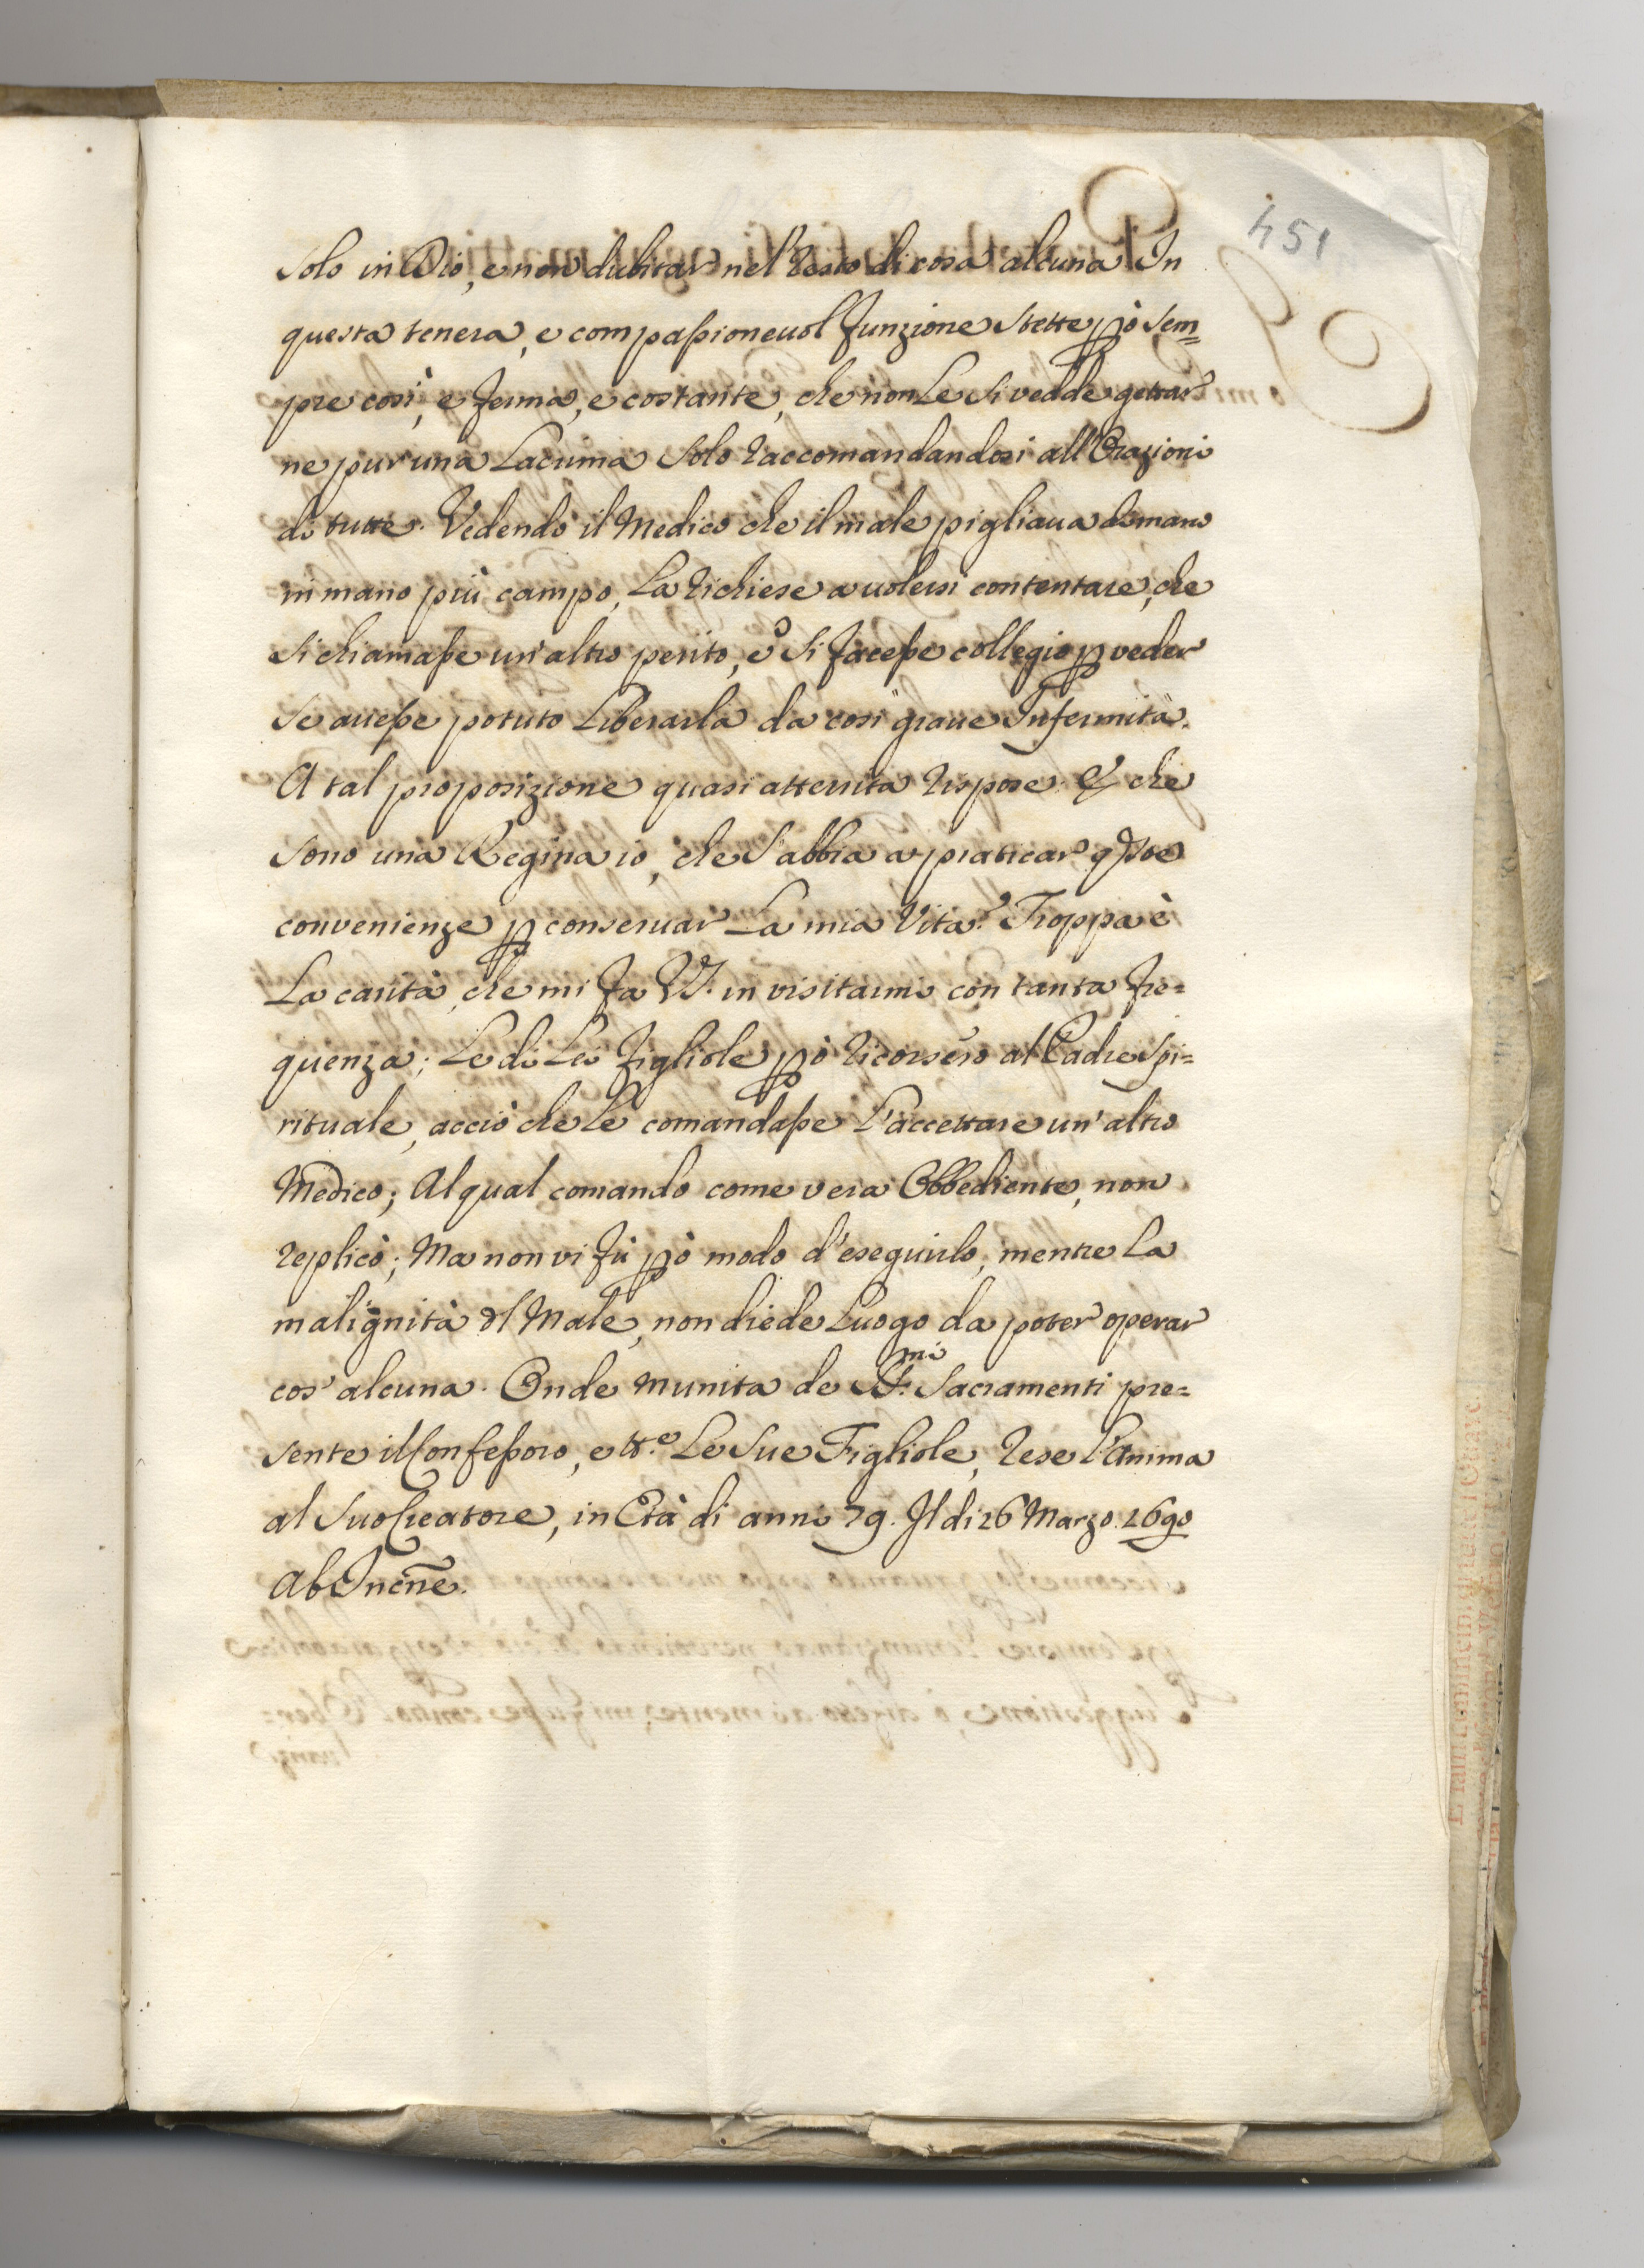 451
solo in Dio, e non dubitar nel resto di cosa alcuna In
questa tenera, e compassioneuol funzione stette pò sem=
pre così, e ferma, e costante, che non Le si vedde gettar
ne pur una Lacrima solo raccomandandosi all'Orazioni
di tutte. Vedendo il Medico che il male pigliaua di mano
in mano più campo, La richiese a uolersi contentare, che
si chiamasse un'altro perito, e si facesse collegio p veder
se auesse potuto Liberarla da così graue Infermità.
A tal proposizione quasi atterrita rispose: che
sono una Regina io, che s'abbia a praticar qste
convenienze p conseruar La mia Vita? Troppa è
La carità, che mi fa VS. in visitarmi con tanta fre=
quenza; Le di Lei figliole pò ricorsero al Padre Spi=
rituale, acciò che Le comandasse L'accettare un'altro
Medico; Al qual comando come vera Obbediente, non
replicò; Ma non vi fù pò modo d'eseguirlo, mentre La
malignità dl Male, non diede Luogo da poter operar
cos'alcuna. Onde munita de SS.mi Sacramenti pre=
sente il Confessoro, e tt.e Le sue Figliole, rese l'Anima
al suo Creatore, in Età di anni 79. Il di 26 Marzo. 1690
Ab Incne.